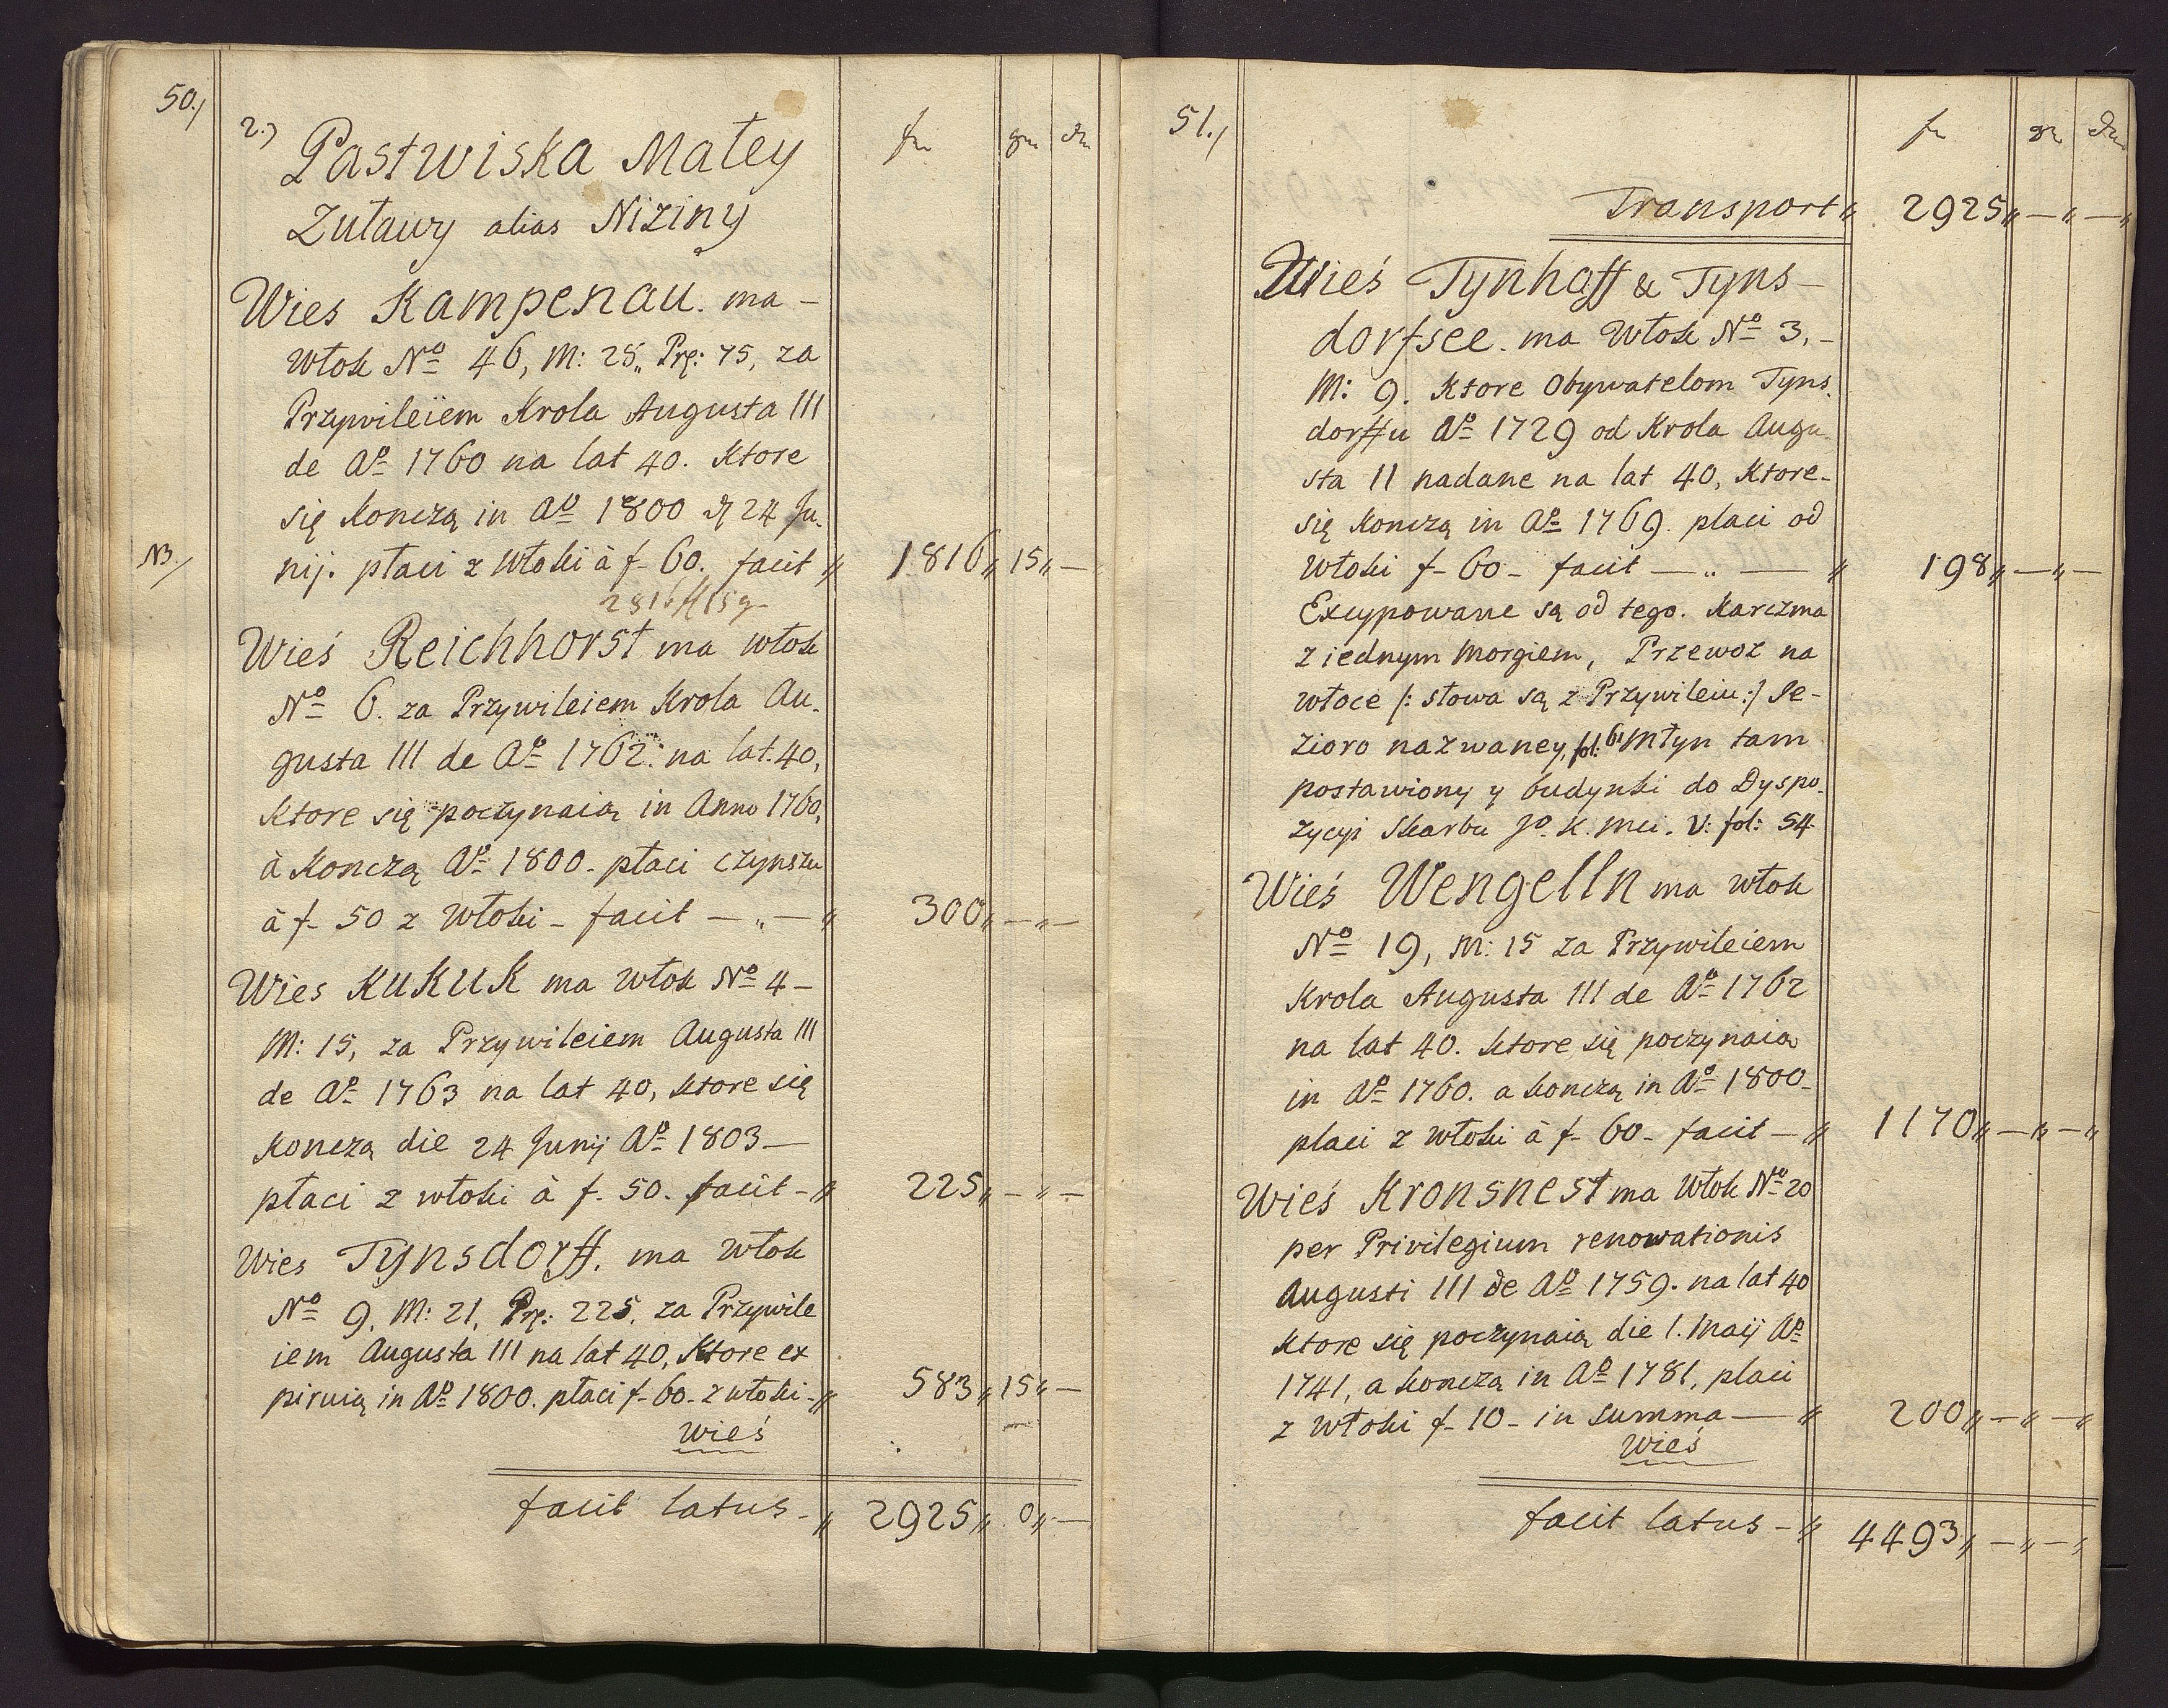 50./
2.) Pastwiska Małey
Zuławy alias Niziny
fr gr dn
Wies Kampenau. ma –
Włok No 46, M: 28,, Prę: 75, za
Przywileiem Krola Augusta III
de Ao 1760 na lat 40. Ktore
się Konczą in Ao 1800 d 24 Ju.
NB./ nij. płaci z Włoki à f– 60. facit „ 1816„ 15„ –
2816 f 15 g
Wieś Reichhorst ma włok
No 6. za Przywileiem Krola Au.
gusta III de Ao 1762. na lat. 40,
Ktore się poczynaią in Anno 1760,
à Konczą Ao 1800. płaci czynszu
à f– 50 z Włoki – facit – „ – „ 300„ – „ –
Wies Kukuk ma Włok No 4 –
M: 15, za Przywileiem Augusta III
de Ao 1763 na lat 40, ktore się
Koncza die 24 Junij Ao 1803 –
płaci z włoki à f– 50. facit – „ 225„ – „ –
Wies Tynsdorff. ma włok
No 9. M: 21, Prę: 225. za Przywile
iem Augusta III na lat 40, Ktore ex
piruią in Ao 1800. płaci f– 60– z włoki – „ 583„ 15„ –
Wieś
facit latus – „ 2925„ 0„ –
51./
fr gr dn
Transport „ 2925„ – „ – „
Wieś Tynhoff & Tyns –
dorfsee. ma Włok No 3, –
M: 9. Ktore Obywatelom Tyns.
dorffu Ao 1729 od Krola Augu.
sta II nadane na lat 40, Ktore –
się Konczą in Ao 1769. placi od
Włoki f– 60 – facit – „ – „ 198„ – „ –
Excypowane są od tego. Karczma
z iednym Morgiem, Przewoz na
włoce /: słowa są z Przywileiu :/ Je –
zioro nazwaney, fol: 61 Młyn tam
postawiony y budynki do Dyspo.
zycyi Skarbu Jo. K. Mci. V: fol: 54
Wieś Wengelln ma włok
No 19, M: 15 za Przywileiem
Krola Augusta III de Ao 1762
na lat 40. ktore się poczynaia
in Ao 1760. a konczą in Ao 1800 –
placi z włoki à f– 60 – facit – „ 1170„ – „ – „
Wieś Kronsnest ma Włok No 20
per Privilegium renowationis
Augusti III de Ao 1759. na lat 40
ktore się poczynaią die 1. Maij Ao
1741, a koncza in Ao 1781, płaci
z włoki f– 10 – in summa – „ 200„ – „ – „
Wieś
facit latus – „ 4493„ – „ – „